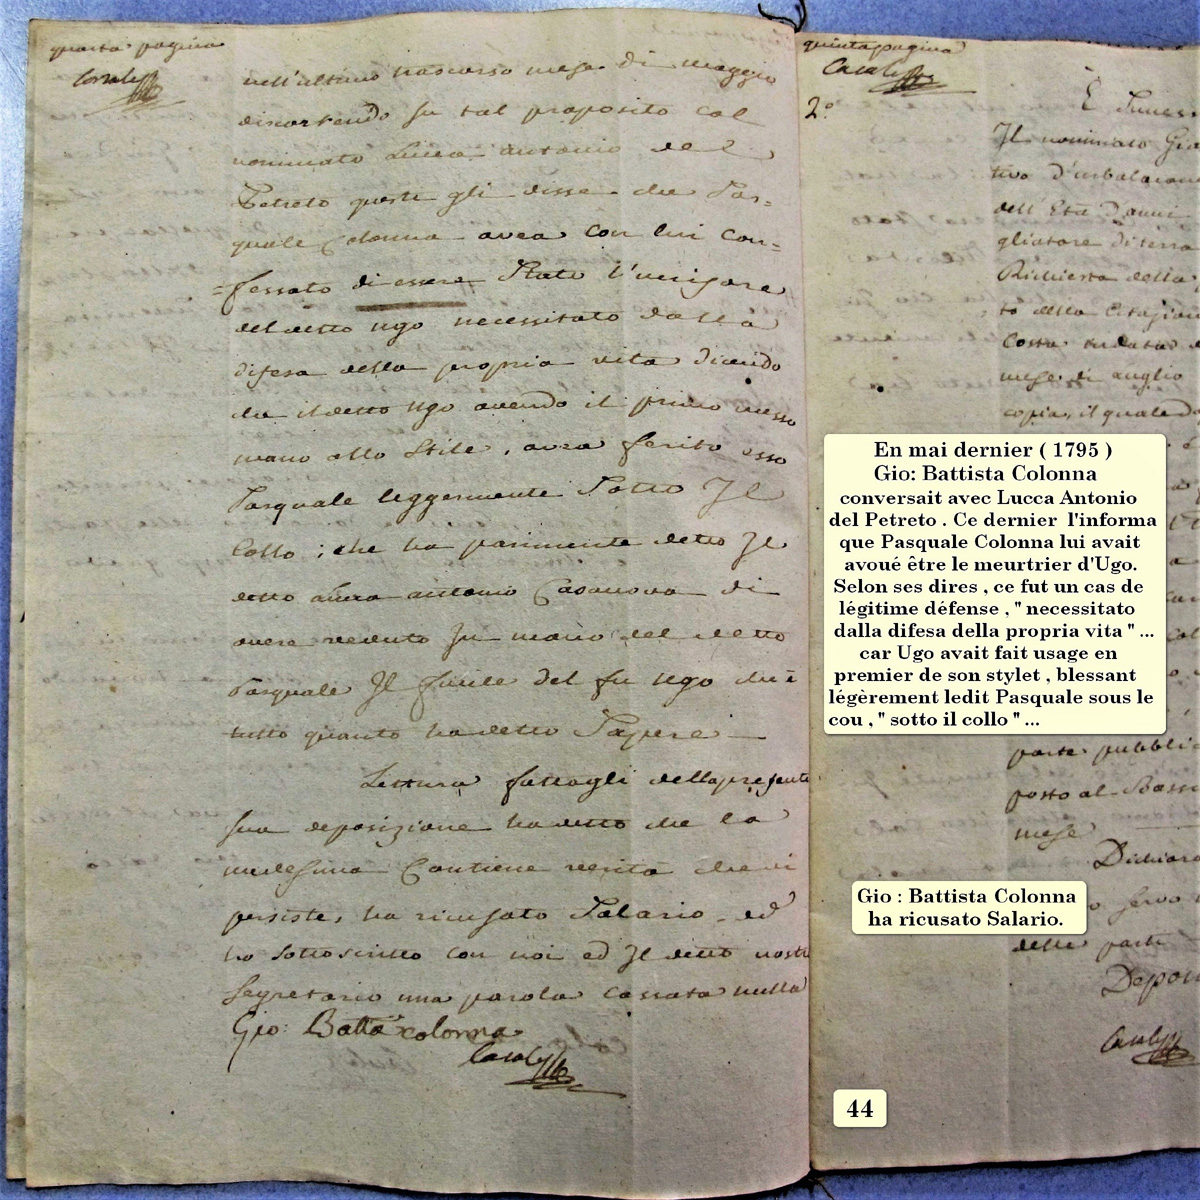 quarta pagina
Casale
nell'ultimo trascorso mese di maggio
discorrendo su tal proposito col
nominato Lucca antonio del
Petreto questi gli disse che Pas=
quale Colonna avea con lui con=
=fessato di essere stato l'uccisore
del detto ugo necessitato dalla
difesa della propria vita dicendo
che il detto ugo avendo il primo messo
mano allo stile, avea ferito esso
Pasquale leggermente sotto Il
Collo; che ha parimente detto Il
detto antonio Casanova di
avere veduto In mano del detto
Pasquale Il fucile del fu ugo che è
tutto quanto ha detto Sapere
Lettura fattagli della presente
sua deposizione ha detto che la
medesima Contiene verità che vi
persiste, ha ricusato Salario, ed
ha sottoscritto con noi ed Il detto nostro
Segretario una parola cassata nulla
Gio: Batta colonna
Casale
quinta pagina
Casale
2°
È
Il nominato Gio
tivo d'
dell'Età d'anni
gliatore di terra
Richiesta della
to della Citazion
Costa in data d
mese di luglio
copia, il quale
parte pubblic
posto al Bassi
mese
Dichiara
o servo
delle parti
Depon
Casale
En mai dernier ( 1795 )
Gio: Battista Colonna
conversait avec Lucca Antonio
del Petreto . Ce dernier l'informa
que Pasquale Colonna lui avait
avoué être le meurtrier d'Ugo.
Selon ses dires , ce fut un cas de
légitime défense , " necessitato
dalla difesa della propria vita " ...
car Ugo avait fait usage en
premier de son stylet , blessant
légèrement ledit Pasquale sous le
cou , " sotto il collo " ...
Gio : Battista Colonna
ha ricusato Salario.
44